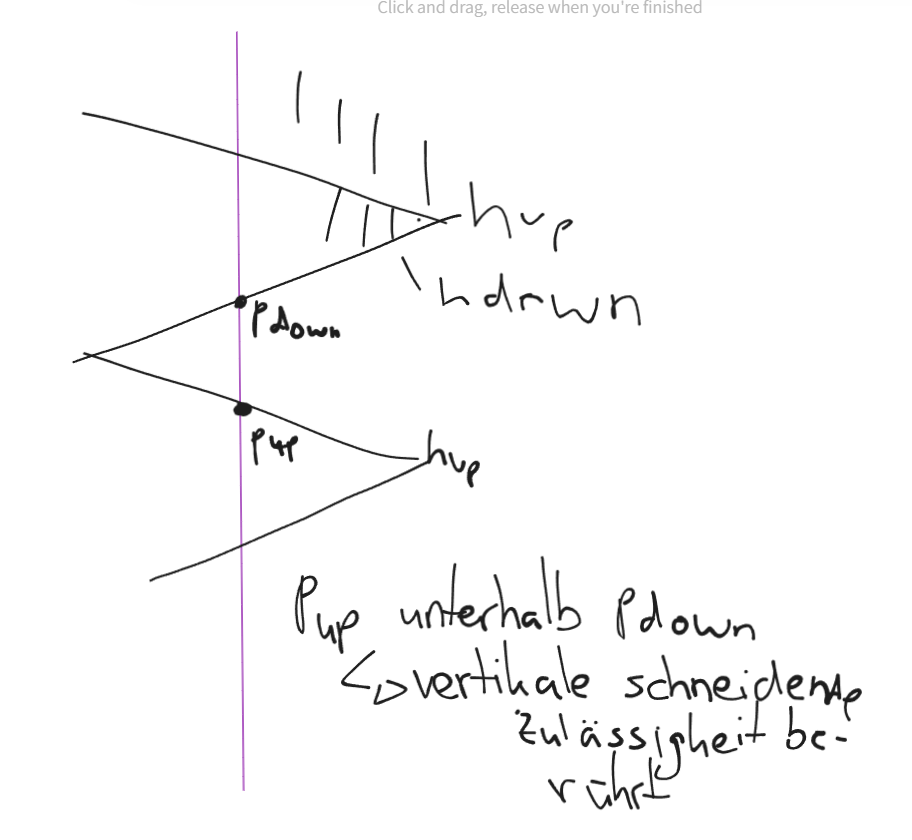 Click and drag, release when you're finished
hup
hdown
Pdown
Pup
hup
Pup unterhalb Pdown
vertikale schneidende
Zulässigkeit be-
rührt